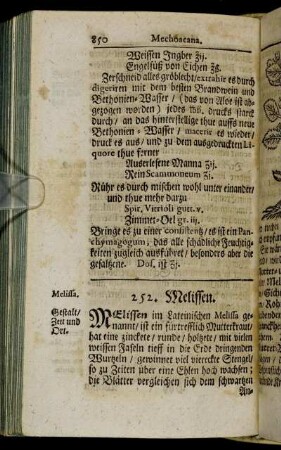 850 Mechoacana.
Weissen Ingber ʒij.
Engelsüß von Eichen ʒß.
Zerschneid alles gröblecht/extrahir es durch
digeriren mit dem besten Brandwein und
Bethonien-Wasser / (das von Aloe ist ab-
gezogen worden) jedes druck's starck
durch/ an das hinterstellige thue auffs neue
Bethonien-Wasser/ macerir es wieder/
druck es aus/ und zu dem ausgedruckten Li-
quore thue ferner
Auserlesene Manna ʒij.
Rein Scammoneum ʒj.
Rühr es durch mischen wohl unter einander/
und thue mehr darzu
Spir. Vitrioli gutt. v.
Zimmet-Oel gr. iij.
Bringe es zu einer consistentz/ es ist ein Pan-
chymagogum, das alle schädliche Feuchtig-
keiten zugleich ausführet/ besonders aber die
gesaltzene. Dos. ist ʒj.
Melissa.
252. Melissen.
Gestalt/
Zeit und
Ort.
MElissen im Lateinischen Melissa ge-
nannt/ ist ein fürtrefflich Mutterkraut/
hat eine zinckete/ runde/ holtzete/ mit vielen
weissen Faseln tieff in die Erde dringenden
Wurtzeln/ gewinnet viel viereckte Stengel/
so zu Zeiten über eine Ehlen hoch wachsen;
die Blätter vergleichen sich dem schwartzen
An-